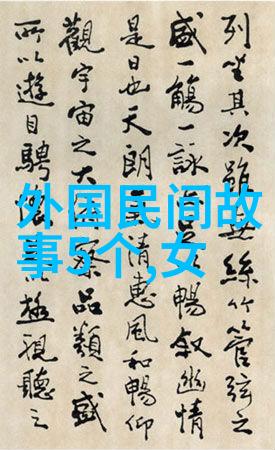 列坐其次雖無絲竹管弦之
盛一觴一詠暢敘幽情
是日也天朗清惠風和暢仰
觀宇宙之大察品類之盛
所以遊目騁懷極視聽之
外国民间故
事5个,女